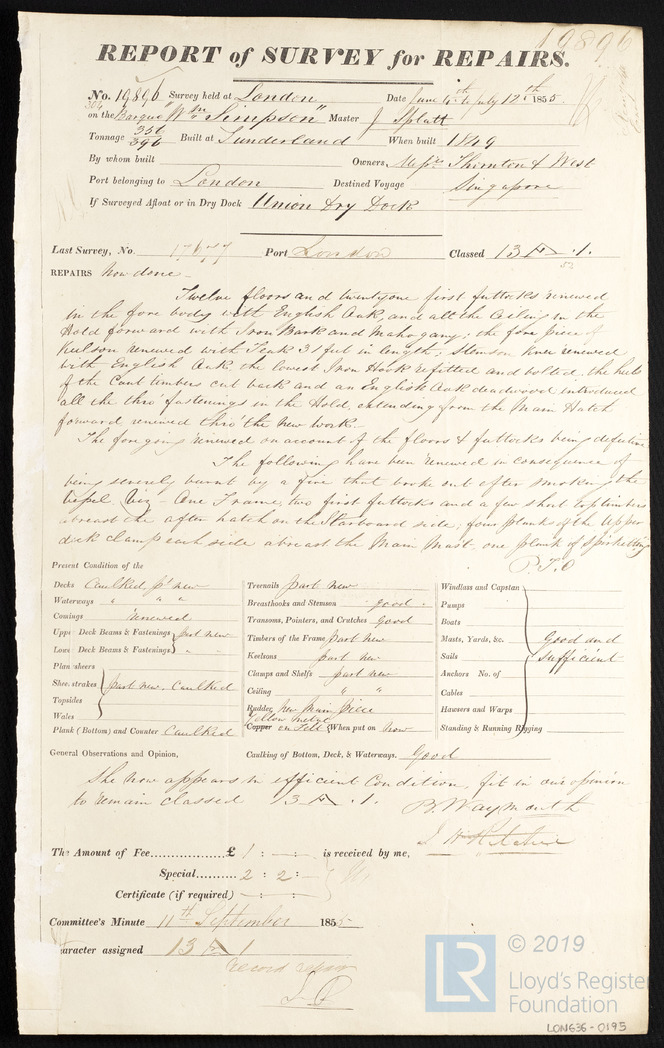 19896
REPORT of SURVEY for REPAIRS.
No. 19896 Survey held at London Date June 4th to July 12th 1855
on the Barque "Wm Simpson" Master J Splatt
Tonnage 350 396 Built at Sunderland When built 1849
By whom built Owners Messrs Thornton & West
Port belonging to London Destined Voyage Singapore
If Surveyed Afloat or in Dry Dock Union Dry Dock
Last Survey, No. 17677 Port London Classed 13 A .1.
REPAIRS Now done
Twelve floors and twentyone first futtocks renewed
in the fore body with English Oak, and all the Ceiling in the
Hold forward with Iron Bark and Mahogany; the fore piece of
Keelson renewed with Teak 31 feet in length, Stemson Knee renewed
with English Oak the lowest Iron Hook refitted and bolted, the heels
of the Cant timbers cut back and an English Oak deadwood introduced
all the thro' fastenings in the Hold, extending from the Main Hatch
forward renewed thro' the new work.
The foregoing renewed on account of the floors & futtocks being defective
The following have been renewed in consequence of
being severely burnt by a fire that broke out after smoking the
Vessel, Viz - One Frame, two first futtocks and a few short toptimbers
abreast the after hatch on the Starboard side; four planks of the Upper
deck clamp each side abreast the Main Mast, one plank of Spirketting
P.T.O
Present Condition of the
Decks Caulked pt new
Waterways " " "
Comings renewed
Upper Deck Beams & Fastenings part new
Lower Deck Beams & Fastenings " "
Plansheers
Sheerstrakes
Topsides
Wales
part new. Caulked
Plank (Bottom) and Counter Caulked
Treenails part new
Breasthooks and Stemson good
Transoms, Pointers, and Crutches Good
Timbers of the Frame part new
Keelsons part new
Clamps and Shelfs part new
Ceiling " "
Rudder New Main Piece
Yellow Metal
Copper on Felt When put on Now
Windlass and Capstan
Pumps
Boats
Masts, Yards, &c. Good and
Sails Sufficient
Anchors No. of
Cables
Hawsers and Warps
Standing & Running Rigging
General Observations and Opinion, Caulking of Bottom, Deck, & Waterways. Good
She now appears in efficient Condition, fit in our opinion
to remain classed 13 A .1.
B. Waymouth
The Amount of Fee £ 1 : - : is received by me,
Special 2 : 2 : -
Certificate (if required) - : - :
Committee's Minute 11th September 1855
Character assigned 13 A 1
© 2019
LR
Lloyd's Register
Foundation
LON636-0195